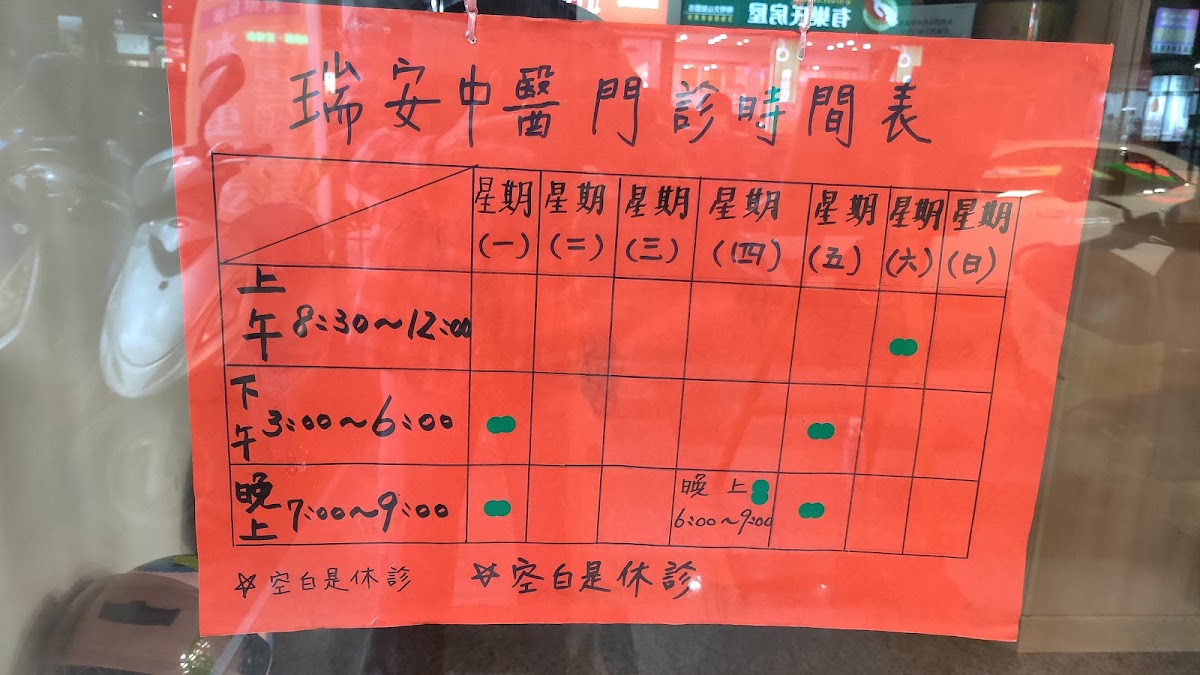 有巢氏房屋
瑞安中醫門診時間表
星期(一) 星期(二) 星期(三) 星期(四) 星期(五) 星期(六) 星期(日)
上午 8:30~12:00
下午 3:00~6:00
晚上 7:00~9:00
晚上
6:00~9:00
☆空白是休診 ☆空白是休診